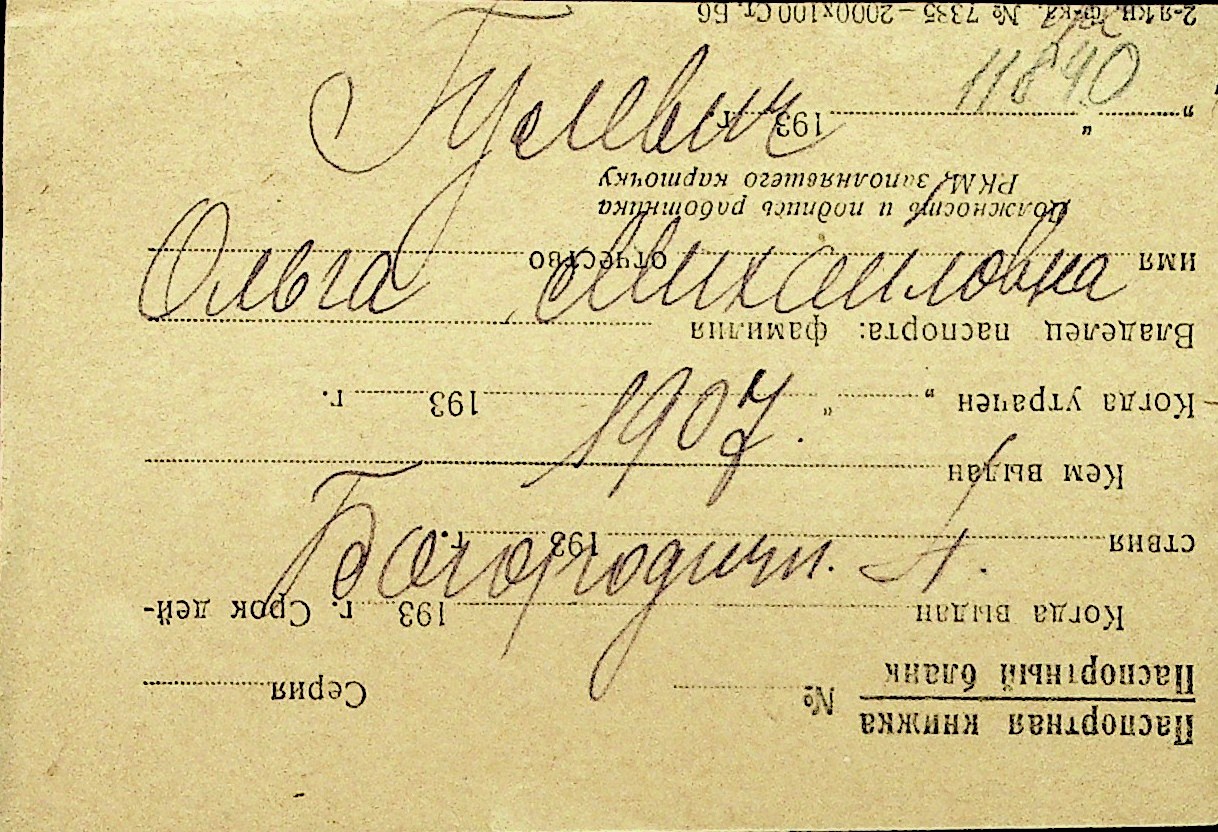 Гулевич
Ольга Михайловна
1907.
Богородичн. 4.
11840
Паспортная книжка
Паспортный бланк
№ Серия
Когда выдан 193 г. Срок дей-
ствия 193 г.
Кем выдан
Когда утрачен „ “ 193 г.
Владелец паспорта: фамилия
имя отчество
Должность и подпись работника
РКМ, заполнявшего карточку
„ “ 193 г.
2-я кн. ф-ка. № 7335 — 2000х100 Ст. Бб